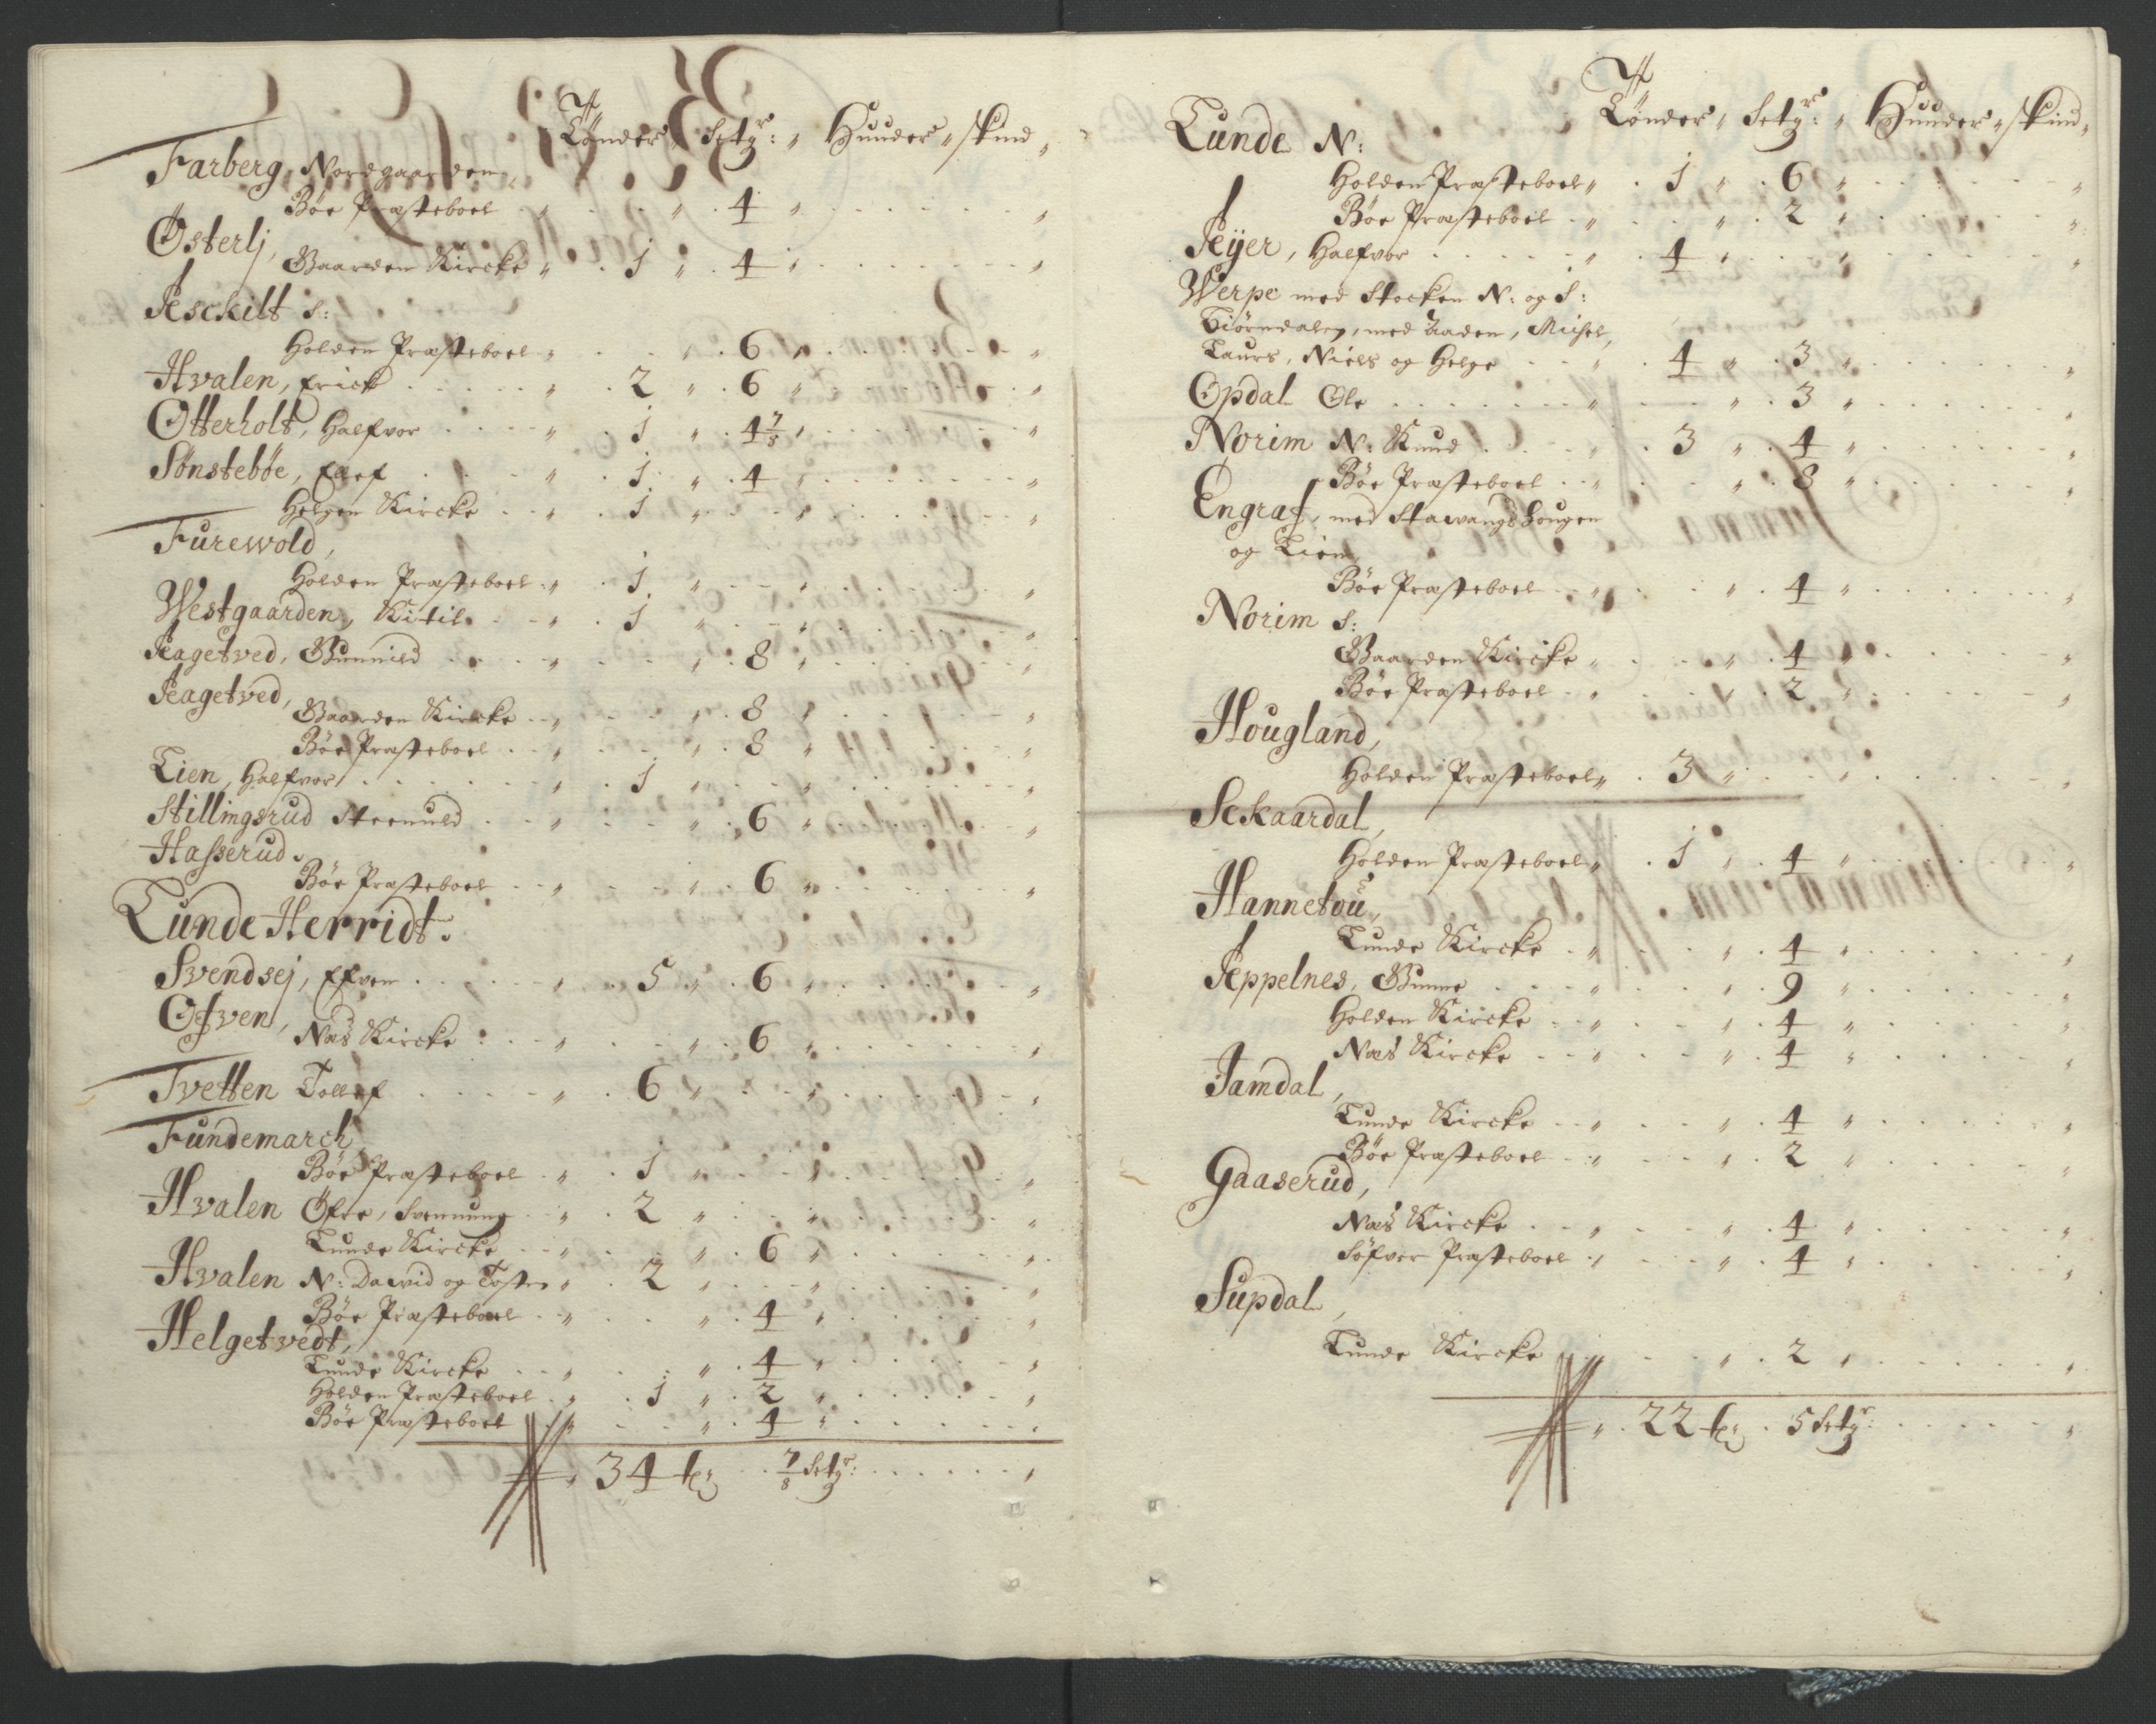 Tönder " Setgr: " Huuder " skind "
Farberg, Nordgaarden
Böe Præsteboel " . . " . 4 " . . "
Österlj,
Gaarden Kircke " . 1 " . 4 " . . "
Aeschilt S:
Holden Præsteboel " . . " 6 " . . "
Hvalen, Erick . . " . 2 " . 6 " . . "
Otterholt, Halfvor . . " . 1 " . 4 7/8 " . . "
Sönstebøe, Elef . . " . 1 " . 4 " . . "
Helgen Kircke . . " . 1 " . . " . . "
Furewold,
Holden Præsteboel " . 1 " . . " . . "
Westgaarden, Kitil . . " . 1 " . . " . . "
Aagetved, Gunnild . . " . . " . 8 " . . "
Aagetved,
Gaarden Kircke . . " . . " . 8 " . . "
Böe Præsteboel . . " . . " . 8 " . . "
Lien, Halfvor . . " . 1 " . . " . . "
Stillingsrud Steenuld . . " . . " . 6 " . . "
Hasserud.
Böe Præsteboel . . " . . " . 6 " . . "
Lunde Herridt.
Svendsej, Efven . . " . 5 " . 6 " . . "
Ofven,
Næs Kircke . . " . . " . 6 " . . "
Tvetten Tollef . . " . 6 " . . " . . "
Fundemarch
Böe Præsteboel . " . 1 " . . " . . "
Hvalen Öfre, Svennung . " . 2 " . . " . . "
Lunde Kircke . . " . . " . 6 " . . "
Hvalen N: David og Tosten " . 2 " . . " . . "
Böe Præsteboel . . " . . " . 4 " . . "
Helgetvedt,
Lunde Kircke . . " . . " . 4 " . . "
Holden Præsteboel . " . 1 " . 2 " . . "
Böe Præsteboel . " . . " . 4 " . . "
" 34 tr . . 7/8 Setgr: . . "
Tönder " Setgr: " Huuder " skind "
Lunde N:
Holden Præsteboel " . 1 " . 6 " . . "
Böe Præsteboel . " . . " . 2 " . . "
Aejer, Halfvor . . " . 4 " . . " . . "
Werpe med Stocken N: og S:
Tiörndalen, med Aaden, Michel,
Laurs, Niels og Helge . . " . 4 " . 3 " . . "
Opdal Ole . . " . . " . 3 " . . "
Norim N: Knud . . " . 3 " . 4 " . . "
Böe Præsteboel . . " . . " . 8 " . . "
Engraf, med Stawangshougen
og Lien
Böe Præsteboel . . " . . " . 4 " . . "
Norim S:
Gaarden Kircke " . . " . 4 " . . "
Böe Præsteboel . " . . " . 2 " . . "
Hougland,
Holden Præsteboel " . 3 " . . " . . "
Sckaardal,
Holden Præsteboel " . 1 " . 4 " . . "
Hannetou,
Lunde Kircke . " . . " . 4 " . . "
Aeppelnes, Gunne . . " . . " . 9 " . . "
Holden Kircke . " . . " . 4 " . . "
Næs Kircke . . " . . " . 4 " . . "
Jamdal,
Lunde Kircke . . " . . " . 4 " . . "
Böe Præsteboel . " . . " . 2 " . . "
Gaaserud,
Næs Kircke . . " . . " . 4 " . . "
Söfver Præsteboel . " . . " . 4 " . . "
Supdal,
Lunde Kircke . . " . 2 " . . "
" . 22 tr . 5 Setgr: . . "